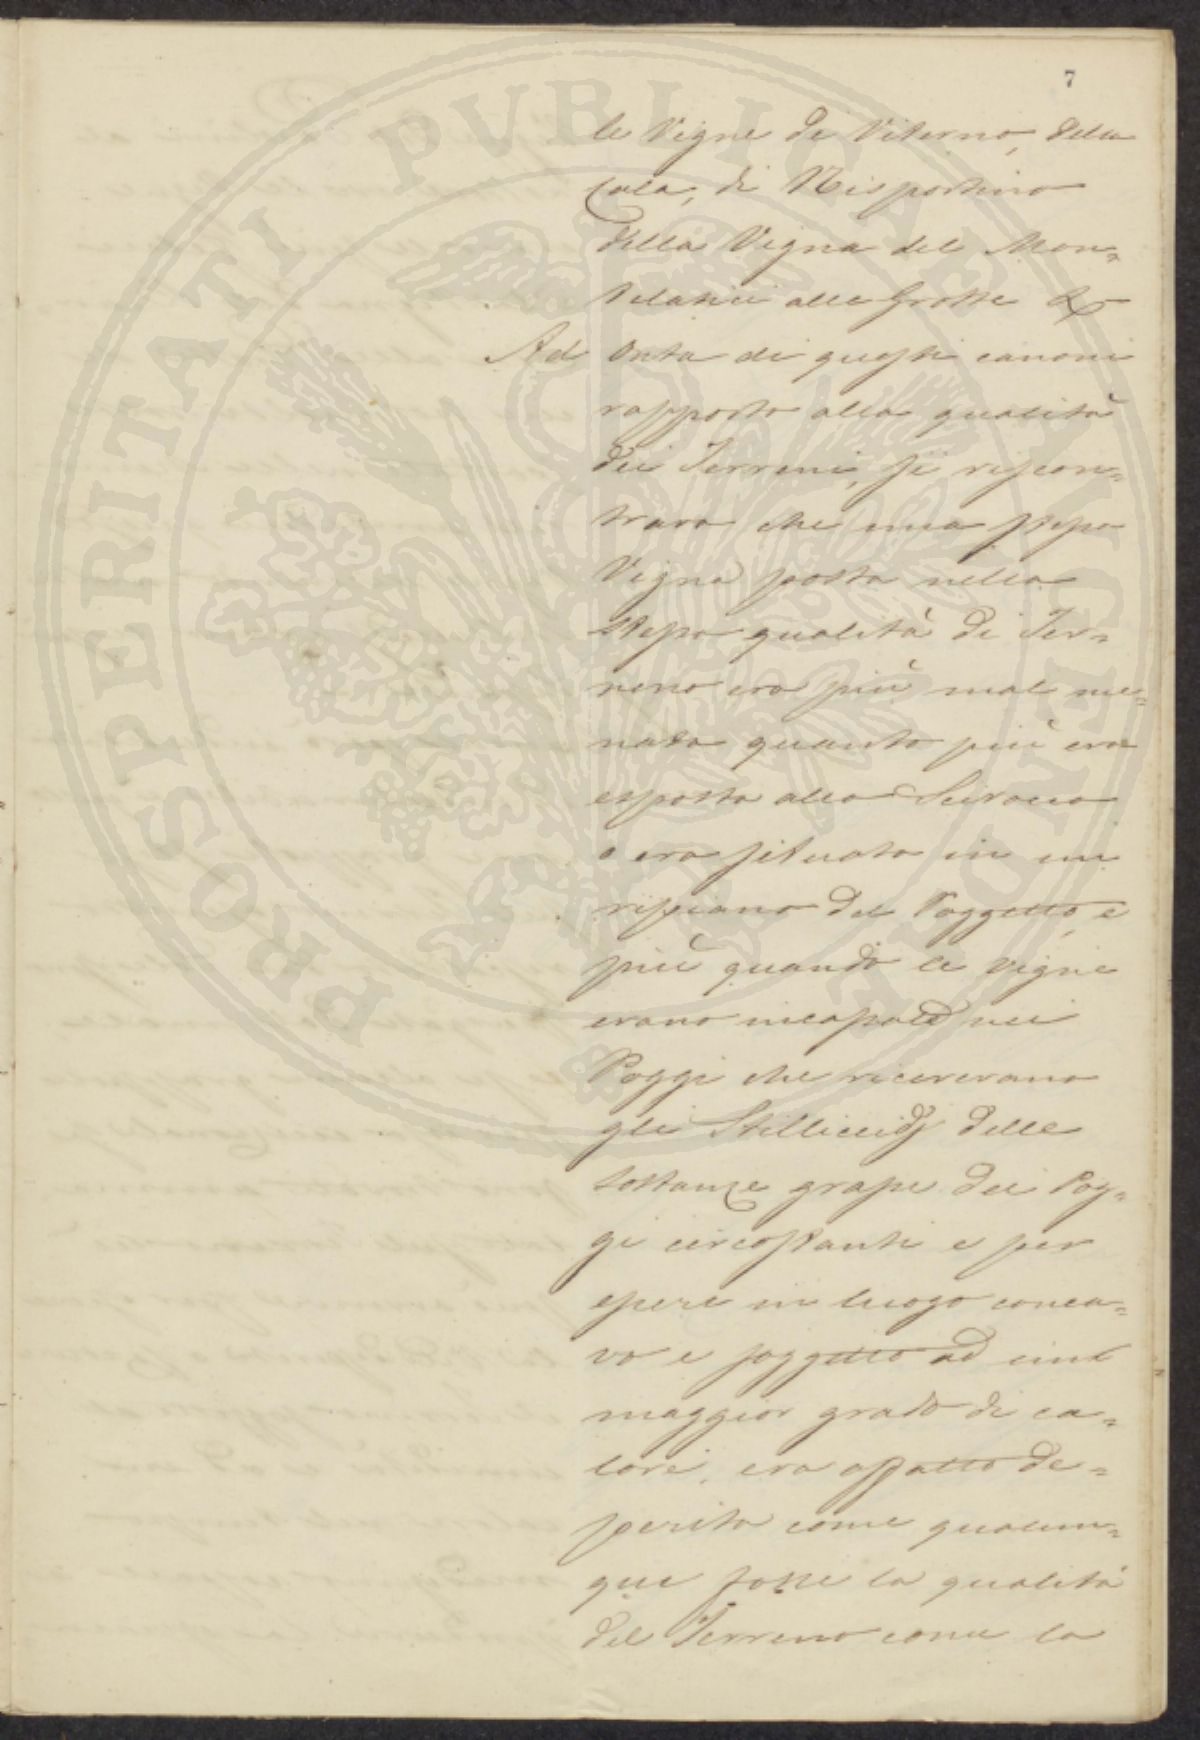 7
le Vigne di Viterno, della
Cala, di Nisportino
della Vigna del Mon=
alle Grotte &
Ad Onta di questi canoni
rapporto alla qualità
dei Terreni, si riscon=
trava che una stessa
Vigna posta nella
stessa qualità di Ter=
reno era più mal me=
nata quanto più era
esposta allo Scirocco
o era situata in un
rispiano del Poggetto, e
più quando le vigne
erano incassate nei
Poggi che ricevevano
gli Stillicidj delle
sostanze grasse dei Pog=
gi circostanti e per
essere in luogo conca=
vo e soggetto ad un
maggior grado di ca=
lore, era affatto de=
perita come qualun=
que fosse la qualità
del Terreno come la
PROSPERITATI PUBLICAE AUGENDAE